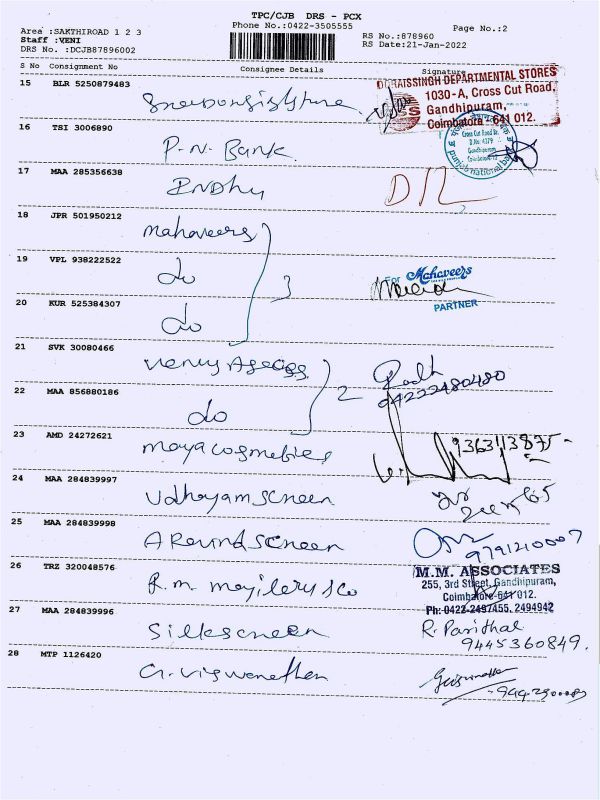 TPC/CJB DRS - PCX
Area :SAKTHIROAD 1 2 3
Phone No.:0422-3505555
Page No.:2
Staff :VENI
RS No.:878960
DRS No. :DCJB87896002
RS Date:21-Jan-2022
S No Consignment No Consignee Details Signature
15 BLR 5250879483
DURAISSINGH DEPARTMENTAL STORES
1030-A, Cross Cut Road,
Gandhipuram,
Coimbatore - 641 012.
16 TSI 3006890
P.N. Bank
Cross Cut Road Br.
D.No: 4379
Gandhipuram
Coimbatore-12
punjab national bank
17 MAA 285356638
18 JPR 501950212
mahaveers
19 VPL 938222522
do
3
For Mahaveers
PARTNER
20 KUR 525384307
do
21 SVK 30080466
04222480480
22 MAA 856880186
do
2
23 AMD 24272621
maya cosmetics
9363113875
24 MAA 284839997
Udhayam screen
25 MAA 284839998
ARavind screen
9791210007
26 TRZ 320048576
M.M. ASSOCIATES
255, 3rd Street, Gandhipuram,
Coimbatore-641 012.
Ph: 0422-2497455, 2494942
27 MAA 284839996
Silkscreen
R. Parithal
9445360849.
28 MTP 1126420
G. Viswanathan